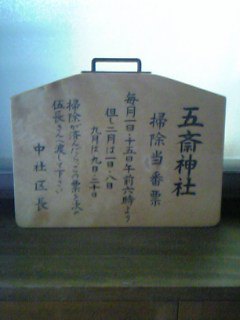 五斎神社
掃除当番票
毎月一日・十五日午前六時より
但し二月は一日・八日
九月は九日・二十日
掃除が済んだらこの票を次の
伍長さんに渡して下さい
中社区長